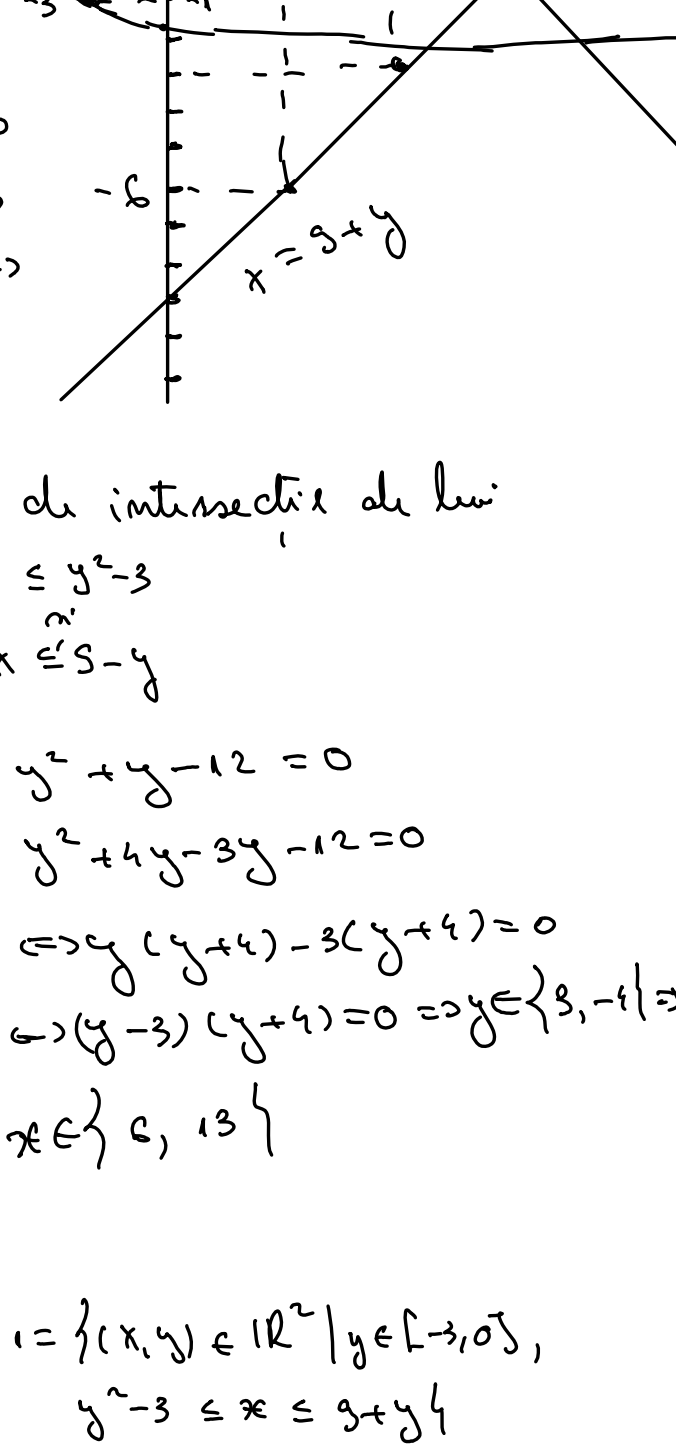 -3
-6
x = 9+y
de intersecție de lui
≤ y²-3
și
x ≤ 9-y
y² + y - 12 = 0
y² + 4y - 3y - 12 = 0
<=> y(y+4) - 3(y+4) = 0
<=> (y-3)(y+4) = 0 => y ∈ {3, -4} =>
x ∈ {6, 13}
1 = {(x,y) ∈ IR² | y ∈ [-3,0],
y²-3 ≤ x ≤ 9+y}